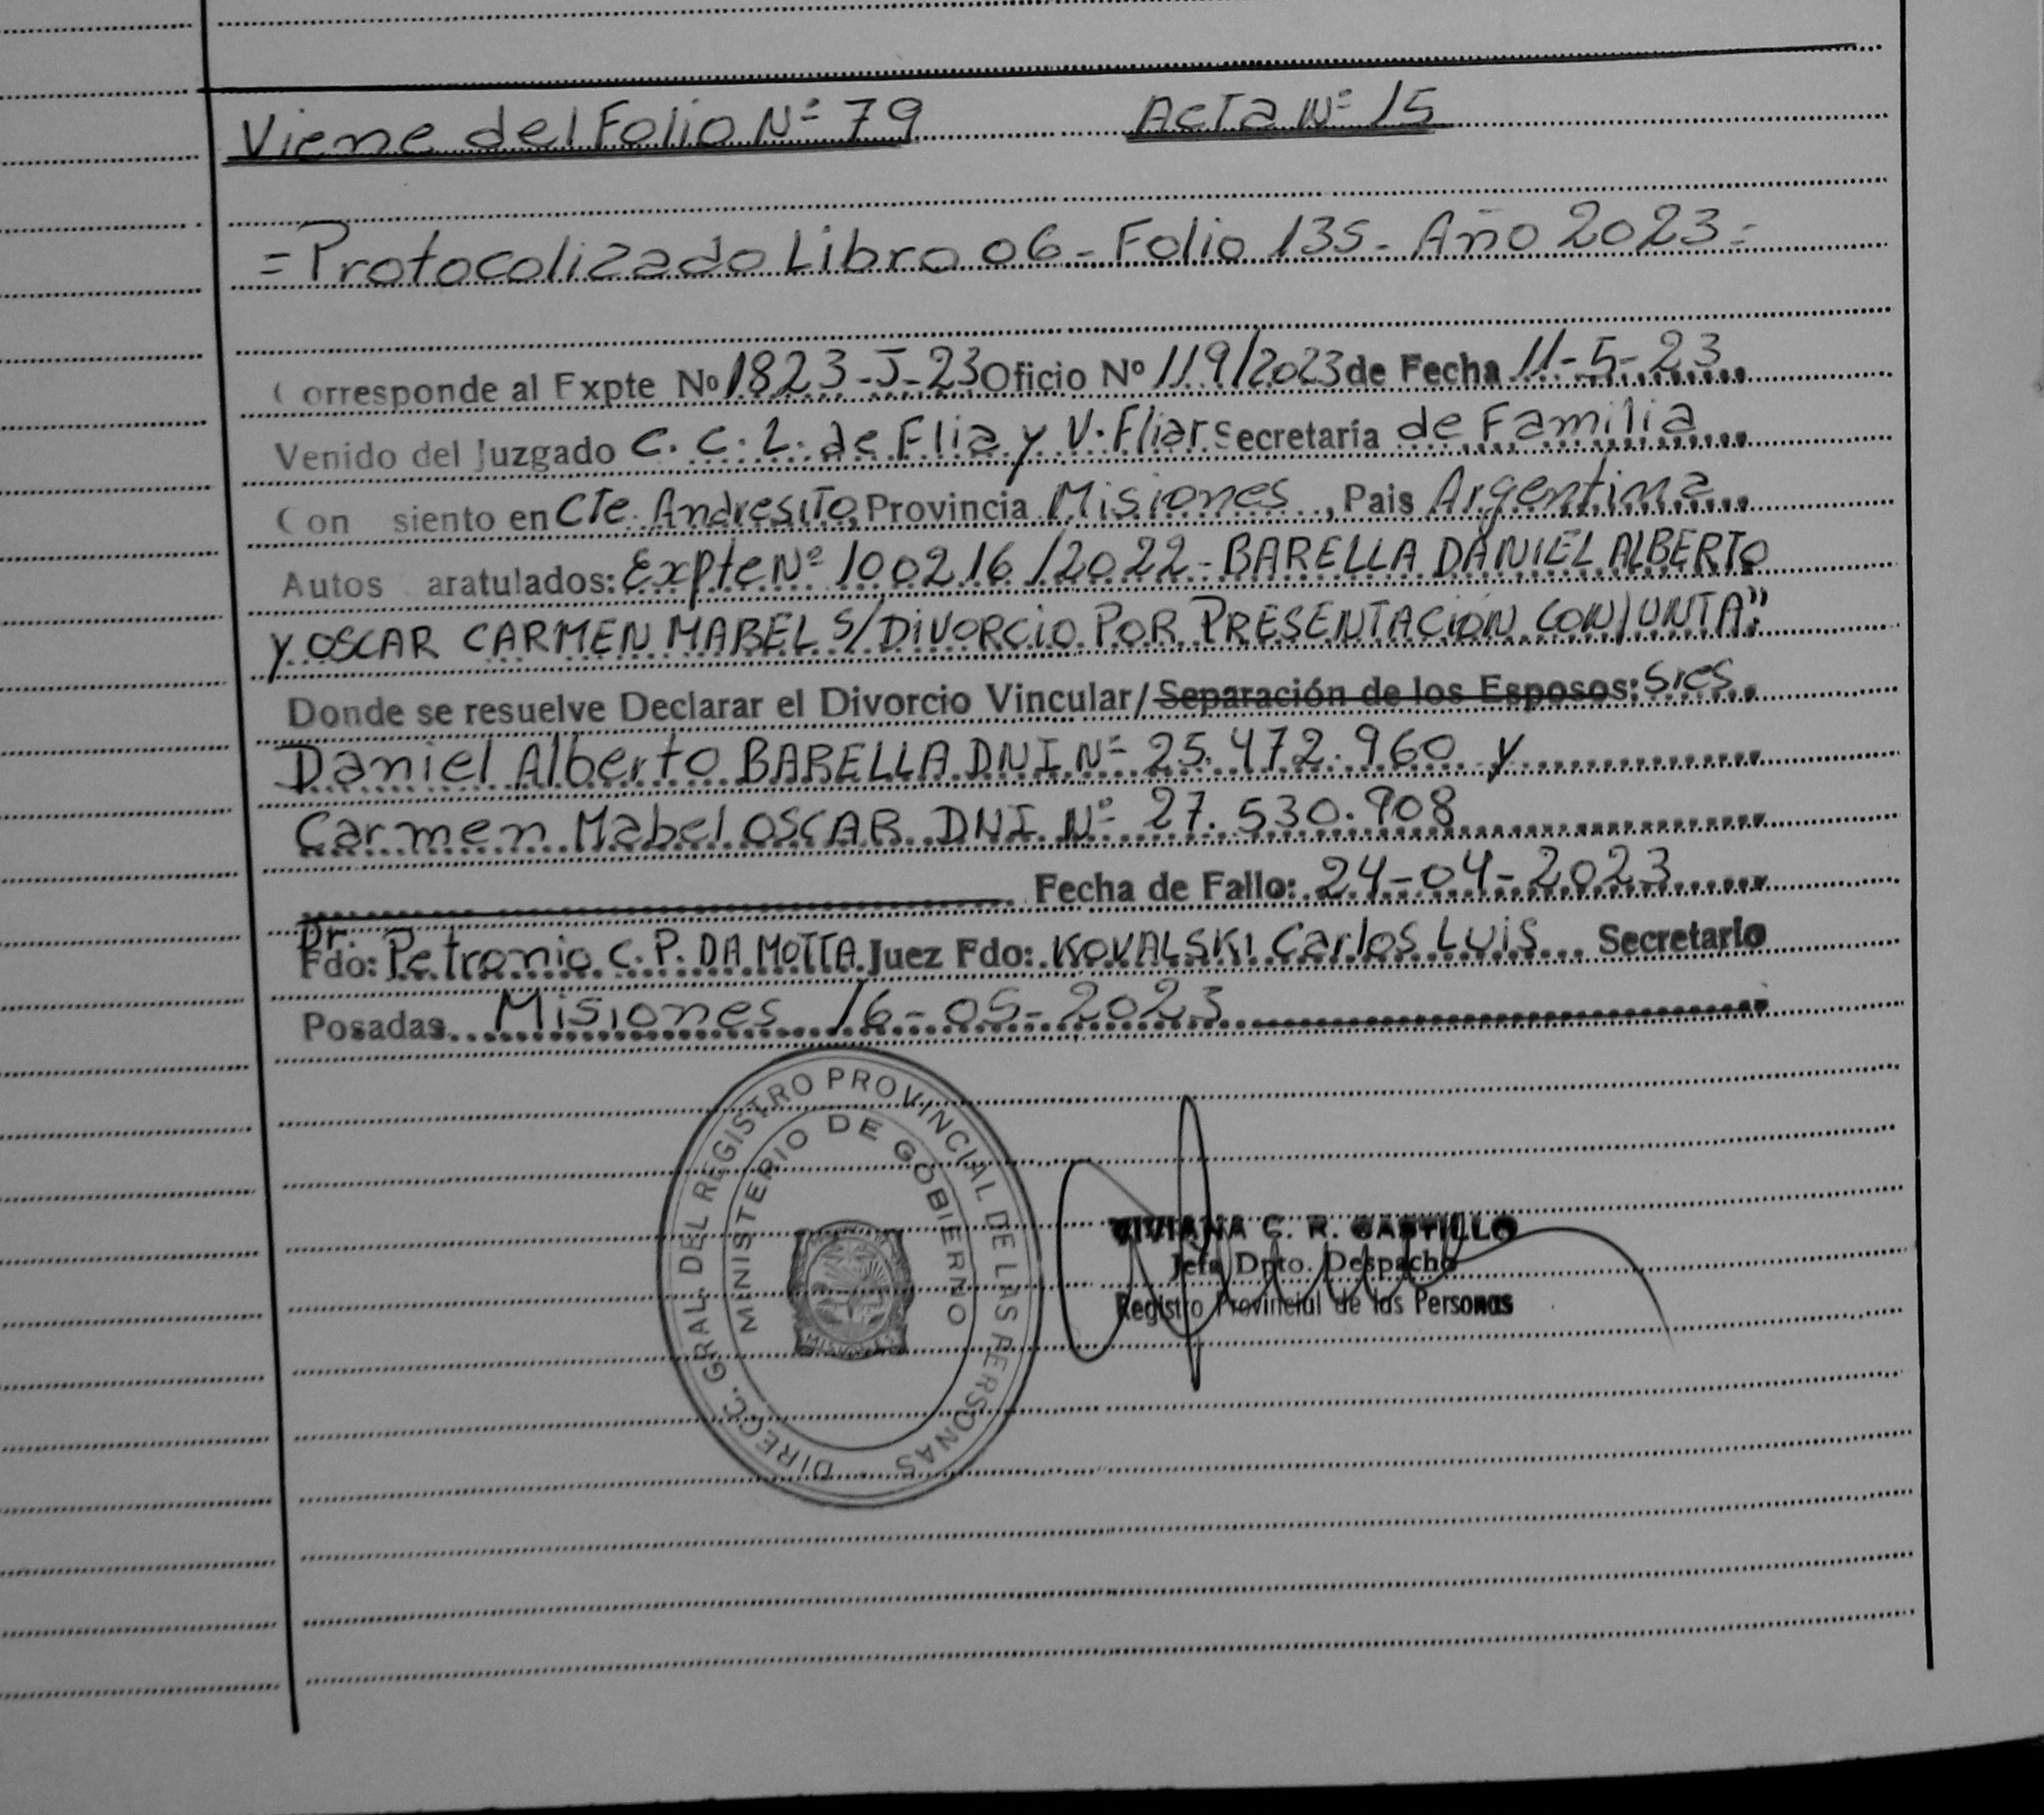 Viene del Folio Nº 79 Acta Nº 15
= Protocolizado Libro 06 - Folio 135 - Año 2023 =
Corresponde al Expte Nº 1823-J-23 Oficio Nº 119/2023 de Fecha 11-5-23
Venido del Juzgado C. C. L. de Flia y V. Fliar Secretaría de Familia
Con siento en Cte. Andresito, Provincia Misiones, Pais Argentina
Autos aratulados: Expte Nº 100216/2022 - BARELLA DANIEL ALBERTO
y OSCAR CARMEN MABEL S/DIVORCIO POR PRESENTACIÓN CONJUNTA"
Donde se resuelve Declarar el Divorcio Vincular/Separación de los Esposos: Sres
Daniel Alberto BARELLA DNI Nº 25.472.960 y
Carmen Mabel OSCAR DNI Nº 27.530.908
Fecha de Fallo: 24-04-2023
Dr.
Fdo: Petronio C. P. DA MOTTA Juez Fdo: KOVALSKI Carlos Luis Secretario
Posadas Misiones 16-05-2023
DIRECC. GRAL. DEL REGISTRO PROVINCIAL DE LAS PERSONAS
MINISTERIO DE GOBIERNO
MISIONES
VIVIANA C. R. CASTILLO
Jefa Dpto. Despacho
Registro Provincial de las Personas